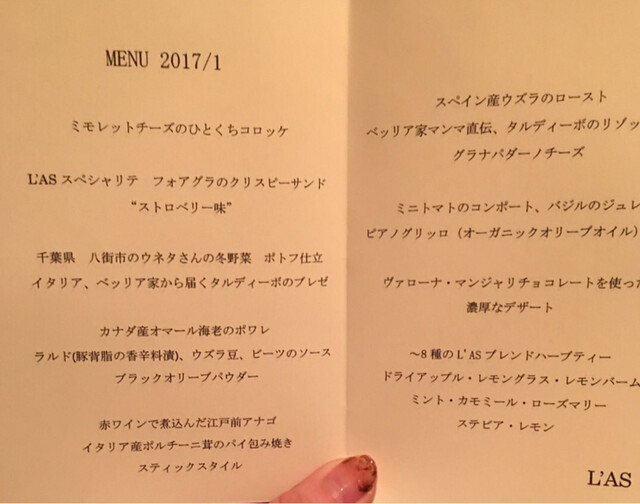 MENU 2017/1
ミモレットチーズのひとくちコロッケ
L'AS スペシャリテ　フォアグラのクリスピーサンド
“ストロベリー味”
千葉県　八街市のウネタさんの冬野菜　ポトフ仕立
イタリア、ベッリア家から届くタルディーボのブレゼ
カナダ産オマール海老のポワレ
ラルド(豚背脂の香辛料漬)、ウズラ豆、ビーツのソース
ブラックオリーブパウダー
赤ワインで煮込んだ江戸前アナゴ
イタリア産ポルチーニ茸のパイ包み焼き
スティックスタイル
スペイン産ウズラのロースト
ベッリア家マンマ直伝、タルディーボのリゾッ
グラナパダーノチーズ
ミニトマトのコンポート、バジルのジュレ
ピアノグリッロ（オーガニックオリーブオイル）
ヴァローナ・マンジャリチョコレートを使った
濃厚なデザート
～8種のL'ASブレンドハーブティー
ドライアップル・レモングラス・レモンバーム
ミント・カモミール・ローズマリー
ステビア・レモン
L'AS